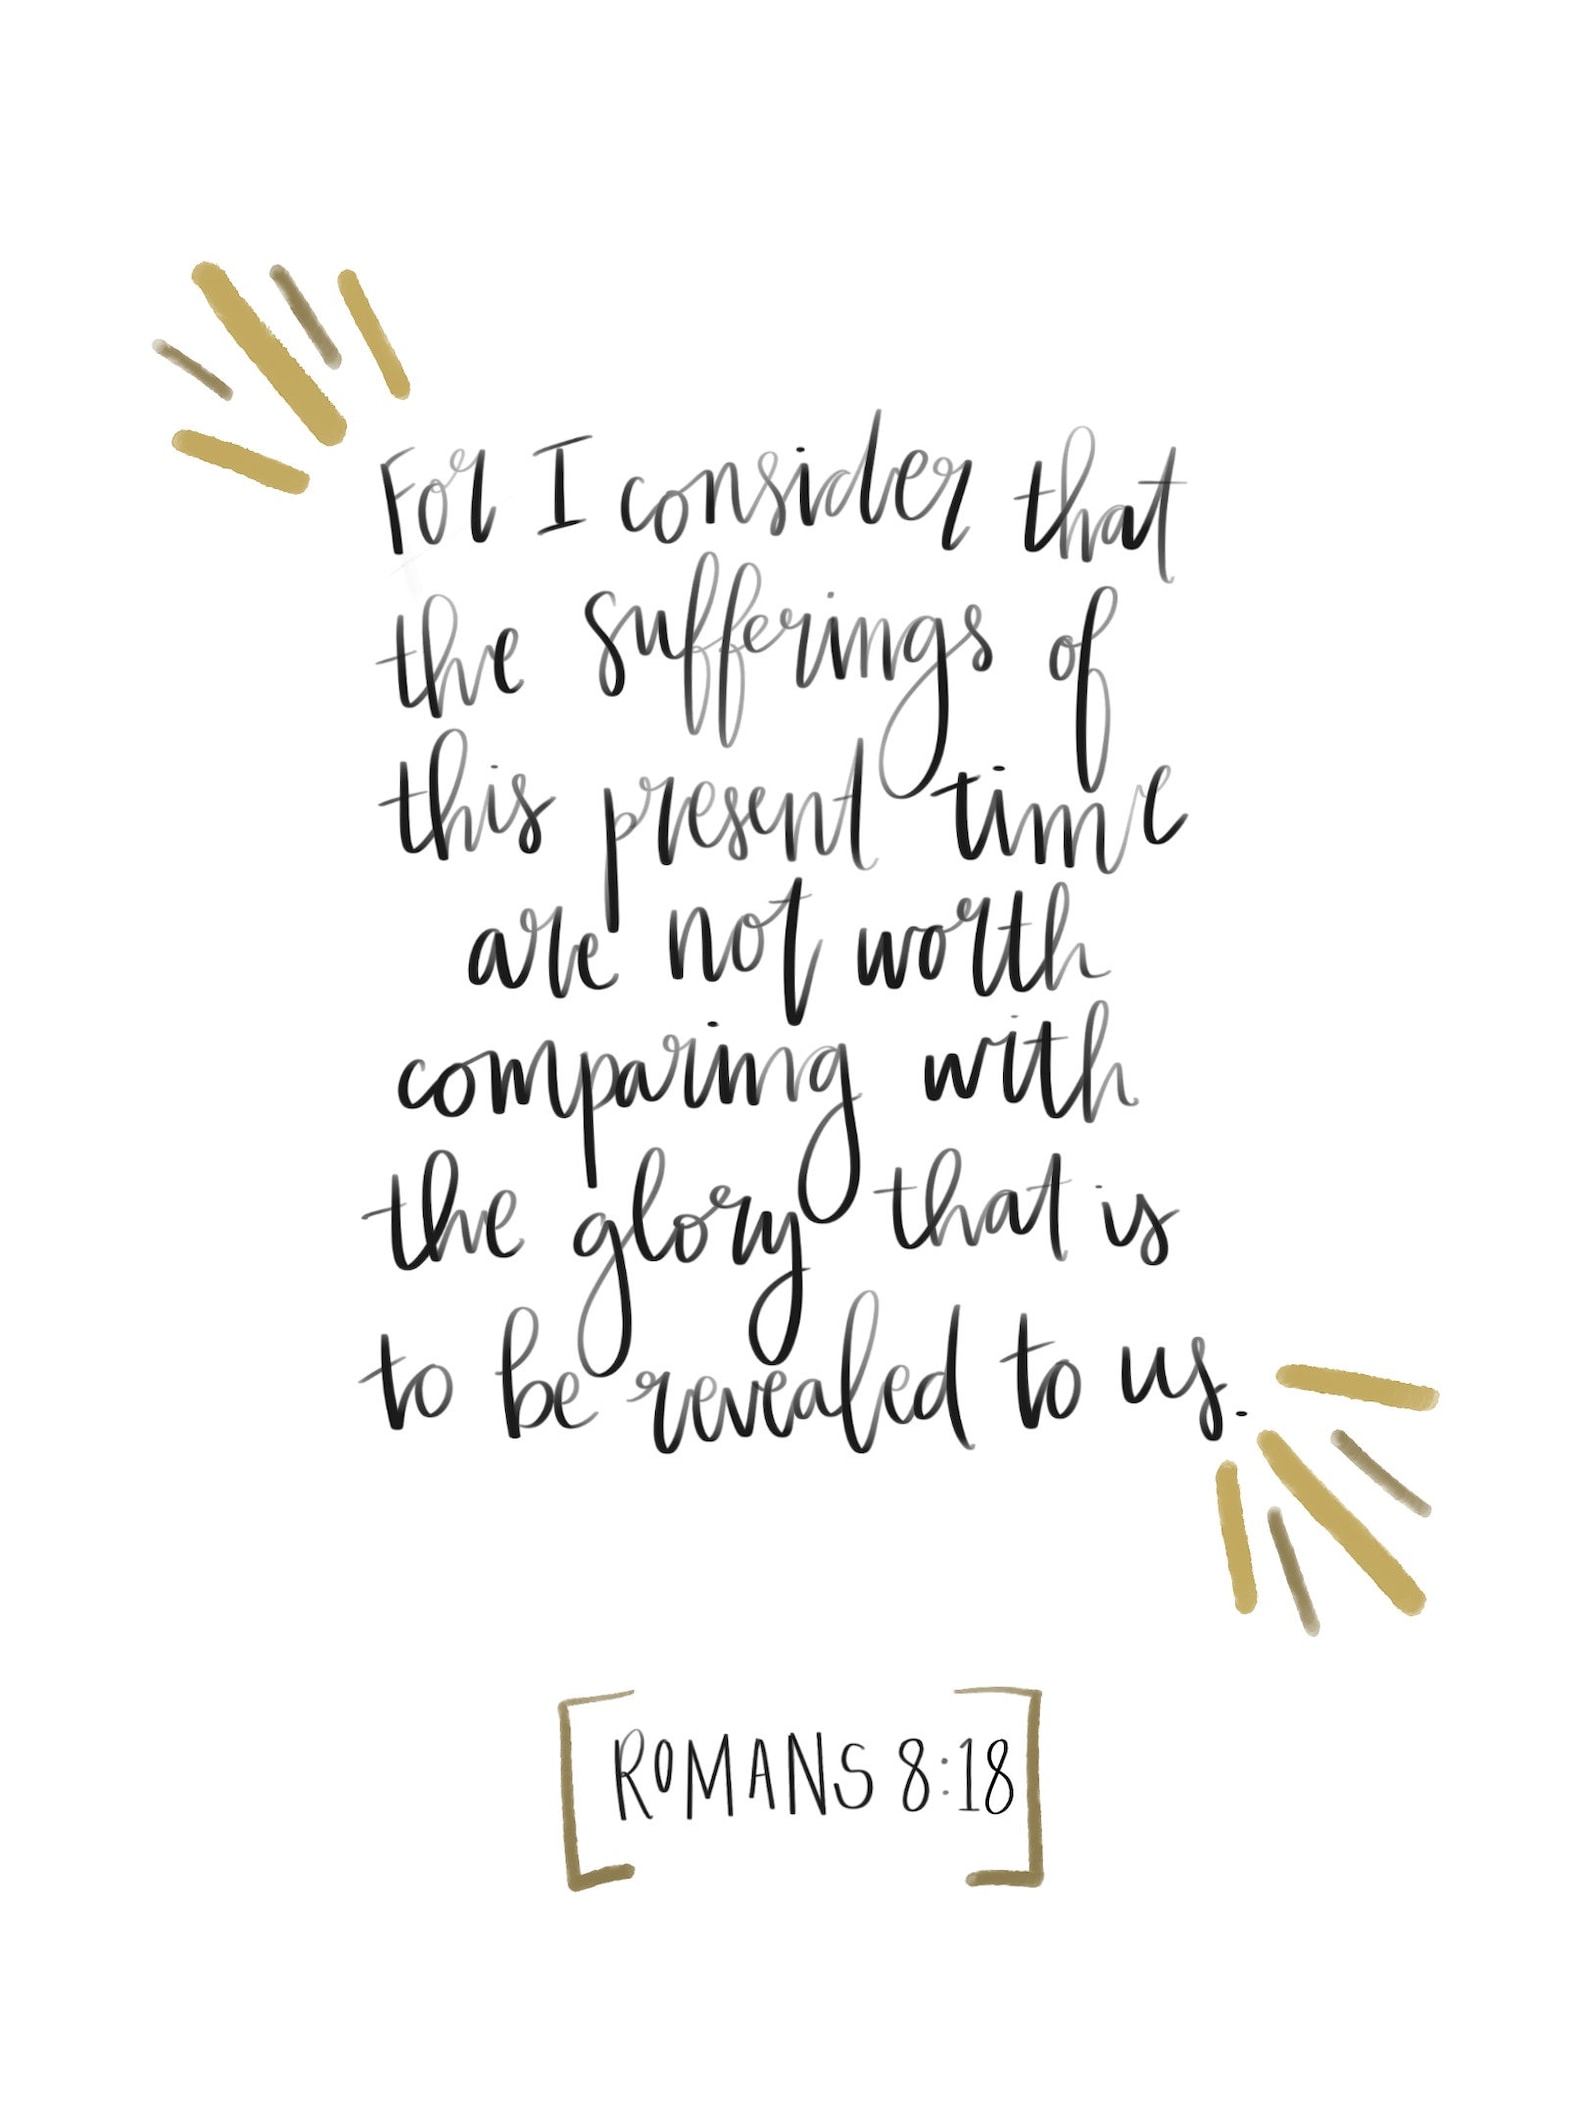 For I consider that
the sufferings of
this present time
are not worth
comparing with
the glory that is
to be revealed to us.
ROMANS 8:18